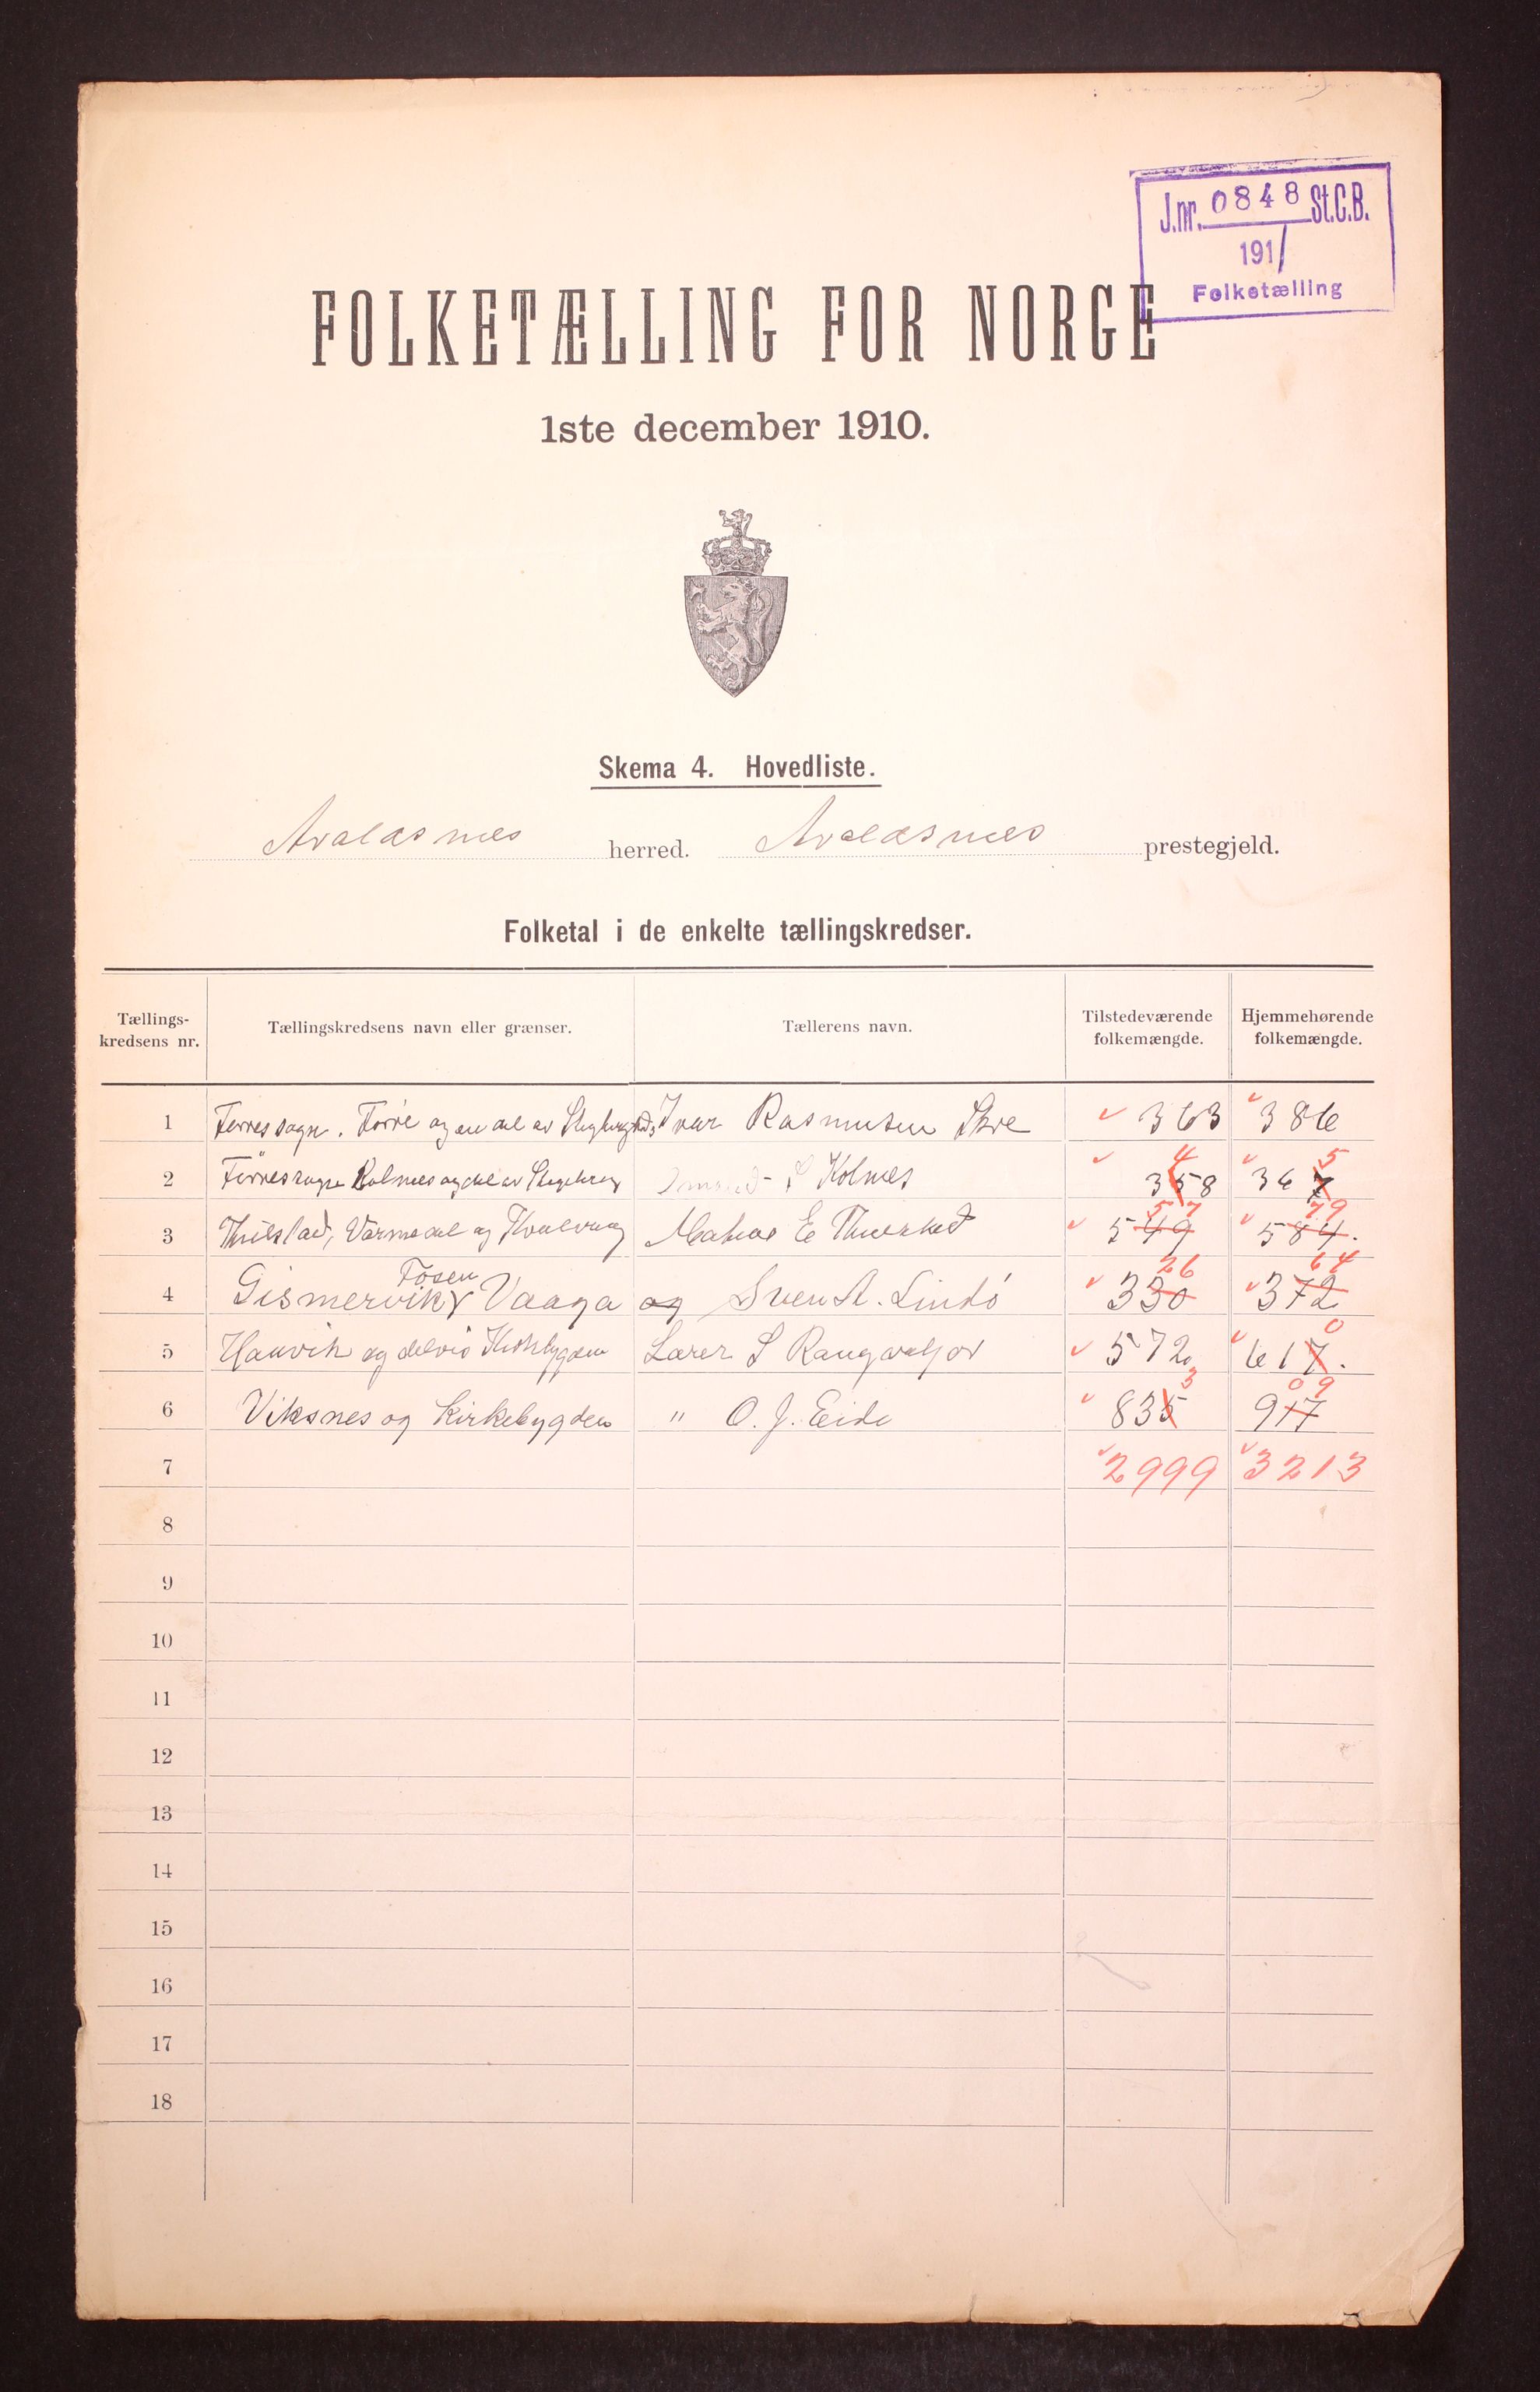 J.nr. 0848 St.C.B.
191/
Folketælling
FOLKETÆLLING FOR NORGE
1ste december 1910.
Skema 4. Hovedliste.
Avaldsnes herred. Avaldsnes prestegjeld.
Folketal i de enkelte tællingskredser.
Tællings-kredsens nr. Tællingskredsens navn eller grænser. Tællerens navn. Tilstedeværende folkemængde. Hjemmehørende folkemængde.
1 Førres sogn. Førre og en del av Ivar Rasmusen Skre 363 386
4 5
2 Førres sogn Kolnes og del av Kolnes 358 367
57 79
3 Værmedal og Kvalvaag E 549 584.
Fosen 26 64
4 Gismervik Vaaga og Sven A. Lindö 330 372
0
5 Haavik og delvis Kirkebygden Lærer S 572 617.
3 09
6 Viksnes og Kirkebygden " O. J. Eide 835 917
7 2999 3213
8
9
10
11
12
13
14
15
16
17
18